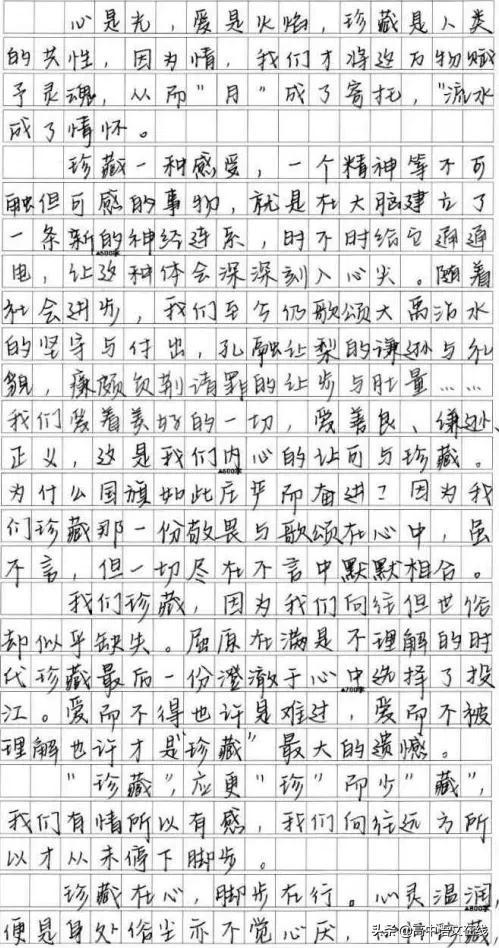 心是光，爱是火焰，珍藏是人类
的共性，因为情，我们才将这万物赋
予灵魂，从而"月"成了寄托，"流水
成了情怀。
珍藏一种感受，一个精神等不可
触但可感的事物，就是在大脑建立了
一条新的神经连系，时不时给它通通
电，让这种体会深深刻入心尖。随着
社会进步，我们至今仍歌颂大禹治水
的坚守与付出，孔融让梨的谦逊与礼
貌，廉颇负荆请罪的让步与肚量……
我们爱着美好的一切，爱善良、谦逊、
正义，这是我们内心的认可与珍藏。
为什么国旗如此庄严而奋进？因为我
们珍藏那一份敬畏与歌颂在心中，虽
不言，但一切尽在不言中默默相合。
我们珍藏，因为我们向往但世俗
却似乎缺失。屈原在满是不理解的时
代珍藏最后一份澄澈于心中选择了投
江。爱而不得也许是难过，爱而不被
理解也许才是"珍藏"最大的遗憾。
"珍藏"，应更"珍"而少"藏"，
我们有情所以有感，我们向往远方所
以才从未停下脚步。
珍藏在心，脚步在行。心灵温润，
便是身处俗尘亦不觉心厌，
▲500字
▲600字
▲700字
▲800字
头条@高中语文在线